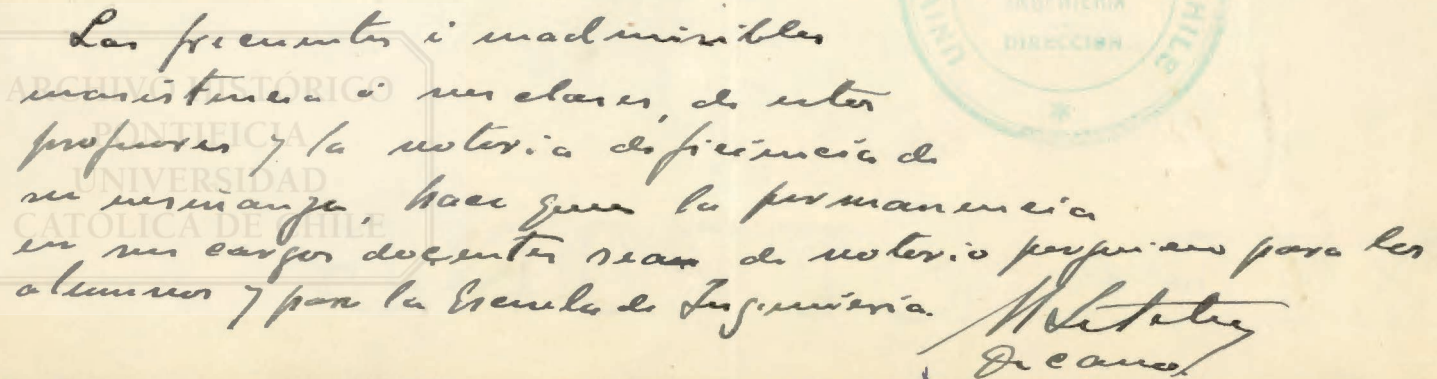 Las frecuentes i inadmisibles
inasistencia á sus clases, de estos
profesores y la notoria deficiencia de
su enseñanza, hace que la permanencia
en sus cargos docentes sean de notorio perjuicio para los
alumnos y para la Escuela de Ingeniería.
Decano
ARCHIVO HISTÓRICO
PONTIFICIA
UNIVERSIDAD
CATÓLICA DE CHILE
INGENIERIA
DIRECCION
UNI
CHILE